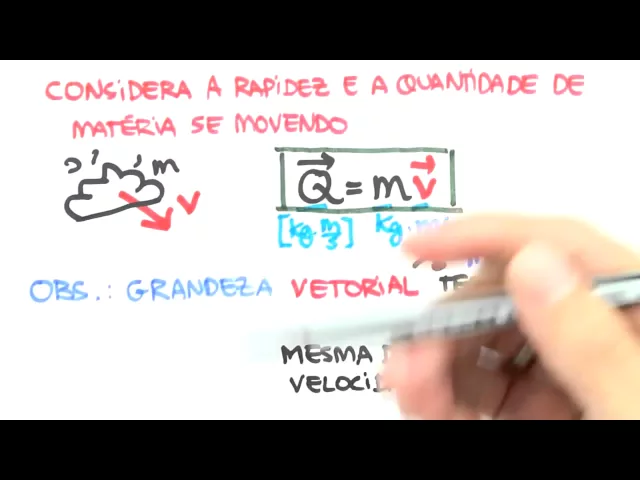 CONSIDERA A RAPIDEZ E A QUANTIDADE DE
MATÉRIA SE MOVENDO
m
v
Q = m v
[kg. m/s] kg.
OBS.: GRANDEZA VETORIAL
MESMA